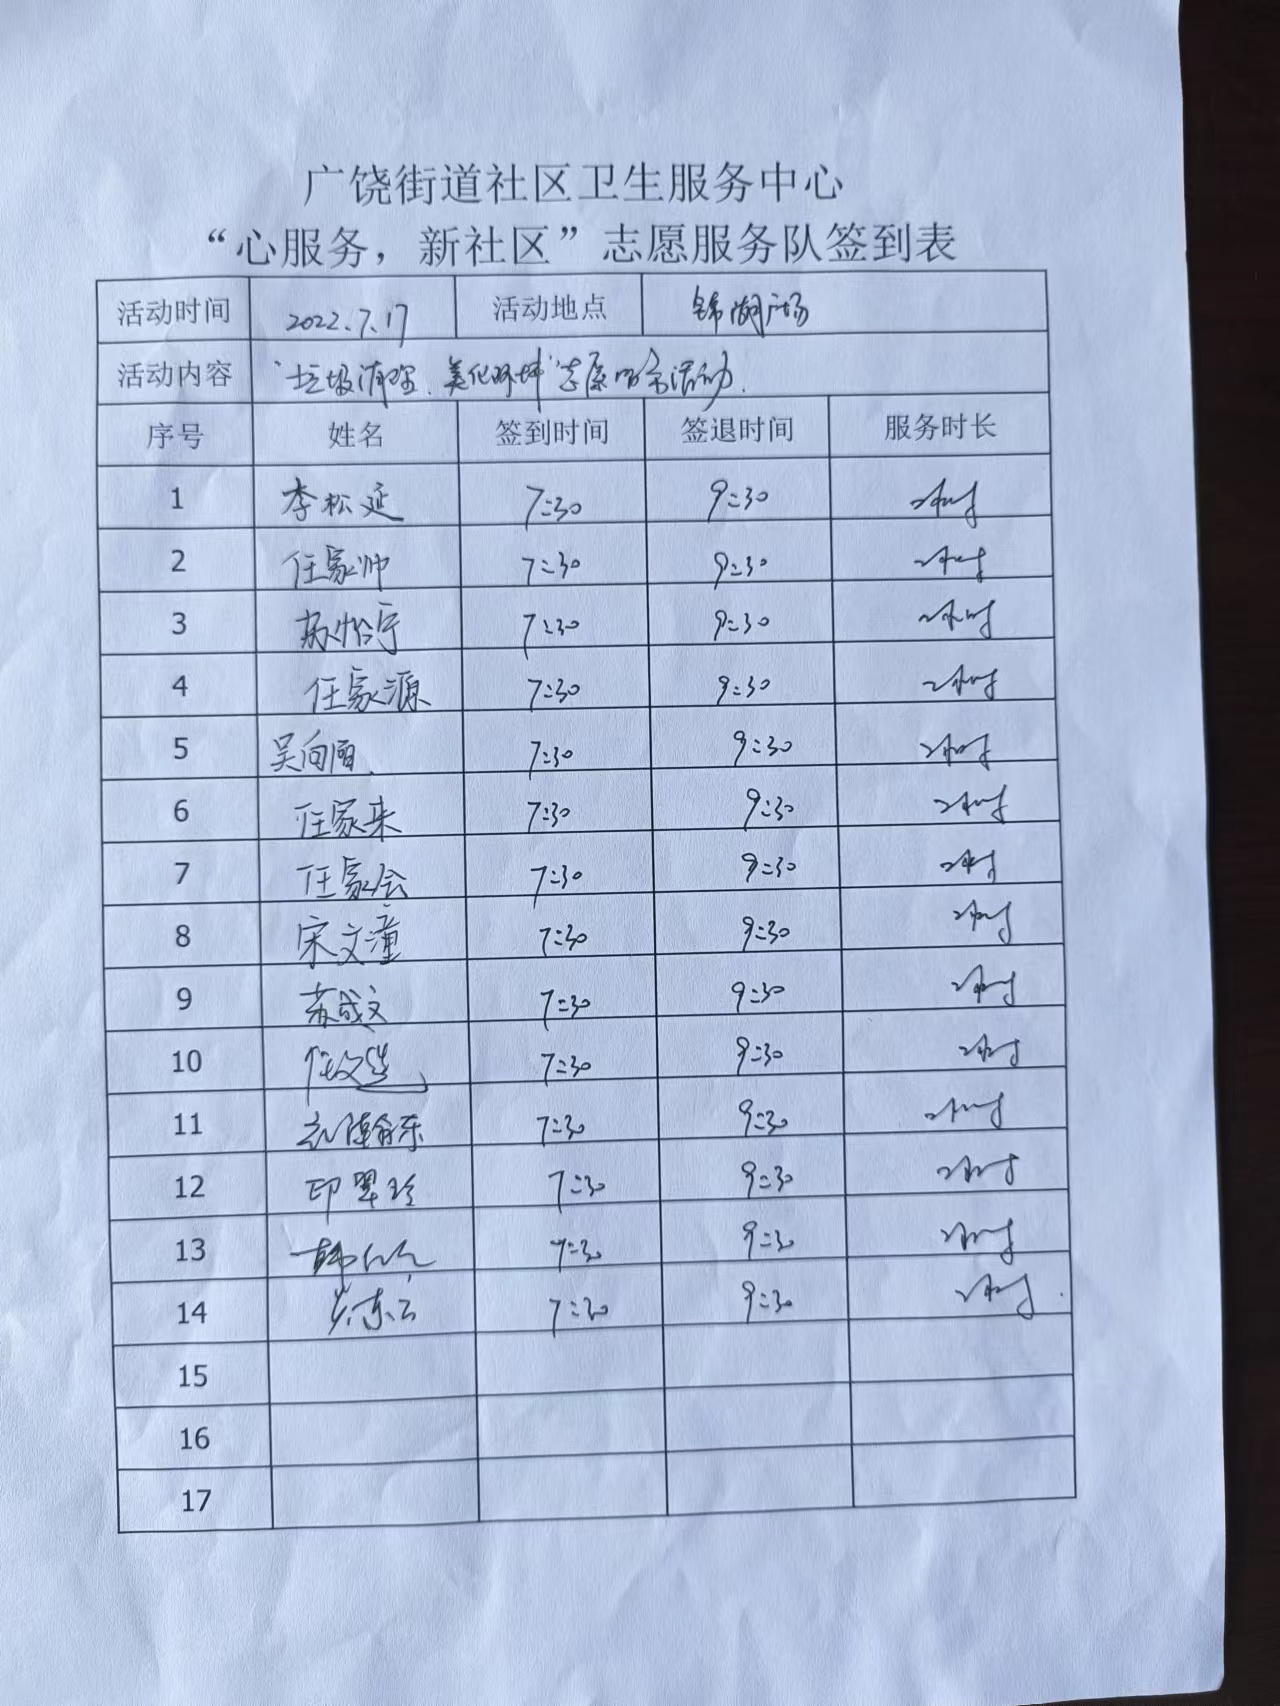 广饶街道社区卫生服务中心
“心服务，新社区”志愿服务队签到表
活动时间 2022.7.17 活动地点 锦湖广场
活动内容 “垃圾清理、美化环境”志愿服务活动.
序号 姓名 签到时间 签退时间 服务时长
1 李松延 7:30 9:30 2小时
2 任家帅 7:30 9:30 2小时
3 苏怡宁 7:30 9:30 2小时
4 任家源 7:30 9:30 2小时
5 吴向 7:30 9:30 2小时
6 任家来 7:30 9:30 2小时
7 任家会 7:30 9:30 2小时
8 宋文潼 7:30 9:30 2小时
9 苏成文 7:30 9:30 2小时
10 任文 7:30 9:30 2小时
11 7:30 9:30 2小时
12 印翠玲 7:30 9:30 2小时
13 韩 7:30 9:30 2小时
14 7:30 9:30 2小时
15
16
17